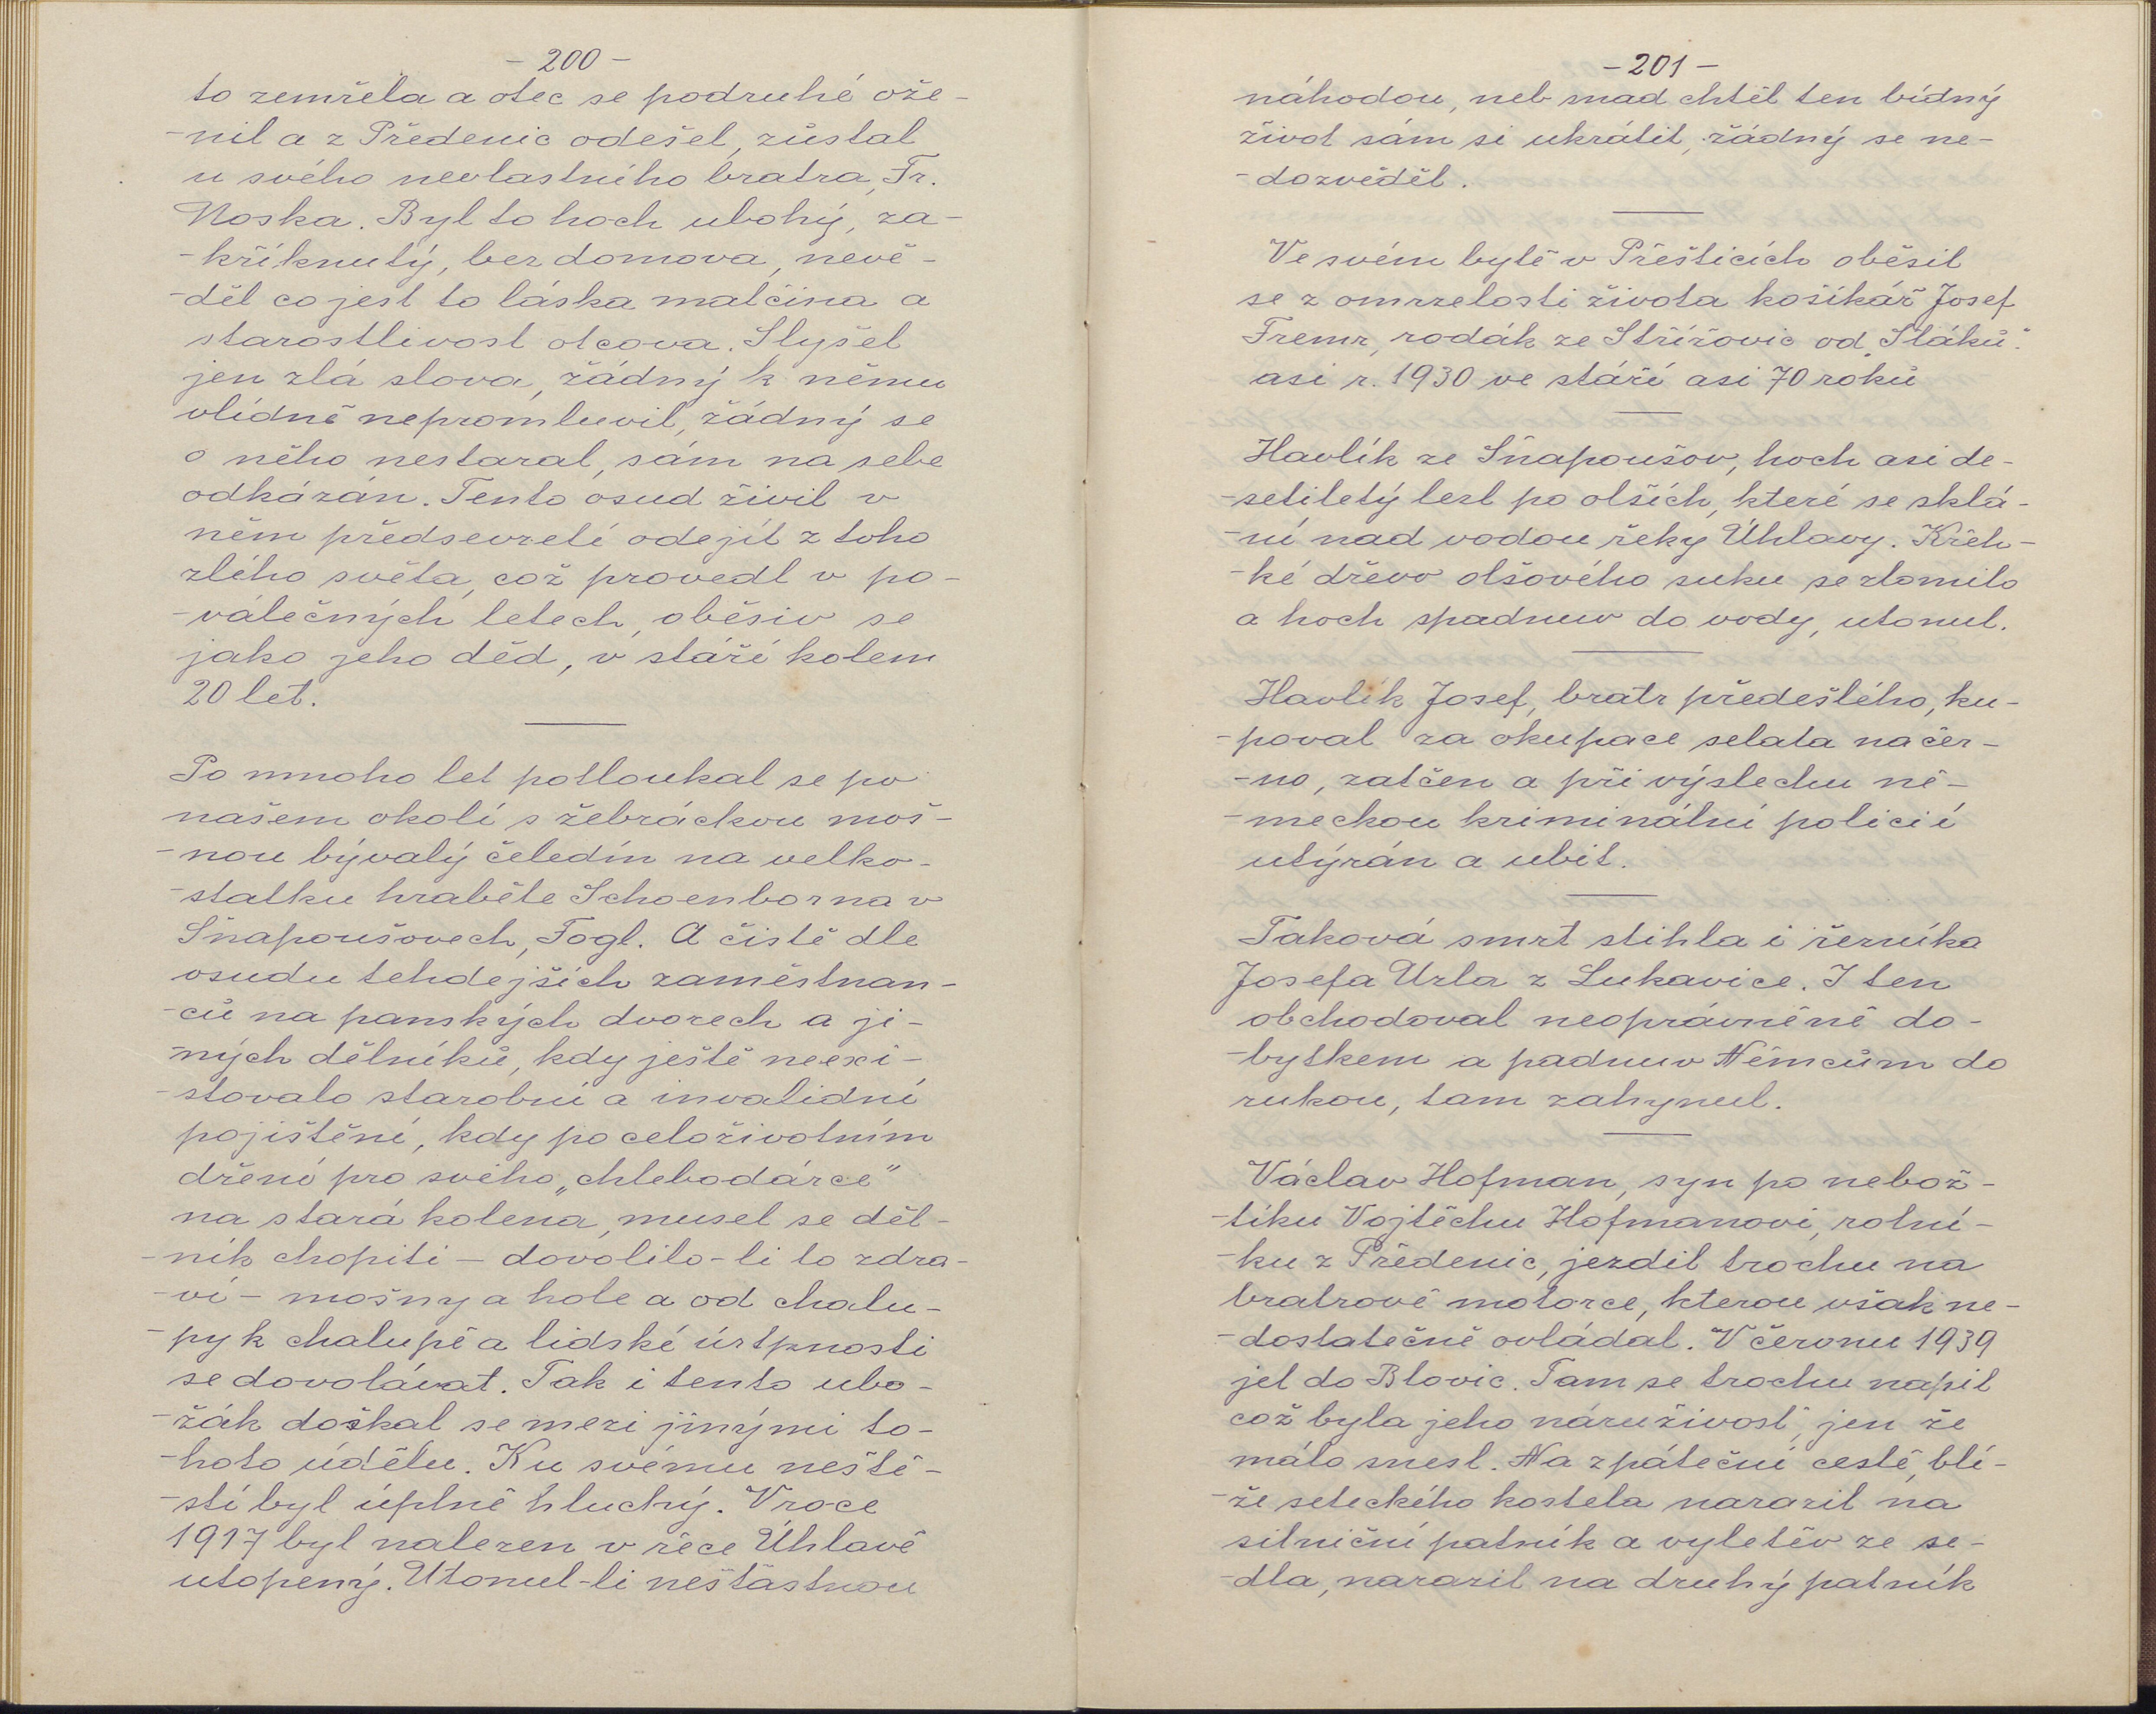 - 200 -
to zemřela a otec se podruhé ože-
-nil a z Předenic odešel, zůstal
u svého nevlastního bratra, Fr.
Noska. Byl to hoch ubohý, za-
-kříknutý, bez domova, nevě-
-děl co jest to láska matčina a
starostlivost otcova. Slyšel
jen zlá slova, žádný k němu
vlídně nepromluvil, žádný se
o něho nestaral, sám na sebe
odkázán. Tento osud živil v
něm předsevzetí odejít z toho
zlého světa, což provedl v po-
-válečných letech, oběsiv se
jako jeho děd, v stáří kolem
20 let.
Po mnoho let potloukal se po
našem okolí s žebráckou moš-
-nou bývalý čeledín na velko-
-statku hraběte Schoenborna v
Šnapoušovech, Fogl. A čistě dle
osudu tehdejších zaměstnan-
-ců na panských dvorech a ji-
-ných dělníků, kdy ještě neexi-
-stovalo starobní a invalidní
pojištění, kdy po celoživotním
dření pro svého „chlebodárce"
na stará kolena, musel se děl-
-ník chopiti - dovolilo-li to zdra-
-ví - mošny a hole a od chalu-
-py k chalupě a lidské útrpnosti
se dovolávat. Tak i tento ubo-
-žák dočkal se mezi jinými to-
-hoto údělu. Ku svému neště-
-stí byl úplně hluchý. V roce
1917 byl nalezen v řece Úhlavě
utopený. Utonul-li nešťastnou
- 201 -
náhodou, neb snad chtěl ten bídný
život sám si ukrátit, žádný se ne-
-dozvěděl.
Ve svém bytě v Přešticích oběsil
se z omrzelosti života košíkář Josef
Fremr, rodák ze Střížovic od „Sláků".
asi r. 1930 ve stáří asi 70 roků
Havlík ze Šnapoušov, hoch asi de-
-setiletý lezl po olších, které se sklá-
-ní nad vodou řeky Úhlavy. Křeh-
-ké dřevo olšového suku se zlomilo
a hoch spadnuv do vody, utonul.
Havlík Josef, bratr předešlého, ku-
-poval za okupace selata načer-
-no, zatčen a při výslechu ně-
-meckou kriminální policií
utýrán a ubit.
Taková smrt stihla i řezníka
Josefa Urla z Lukavice. I ten
obchodoval neoprávněně do-
-bytkem a padnuv Němcům do
rukou, tam zahynul.
Václav Hofman, syn po nebož-
-tíku Vojtěchu Hofmanovi, rolní-
-ku z Předenic, jezdil trochu na
bratrově motorce, kterou však ne-
-dostatečně ovládal. V červnu 1939
jel do Blovic. Tam se trochu napil
což byla jeho náruživost, jen že
málo snesl. Na zpáteční cestě, blí-
-že seteckého kostela narazil na
silniční patník a vyletěv ze se-
-dla, narazil na druhý patník